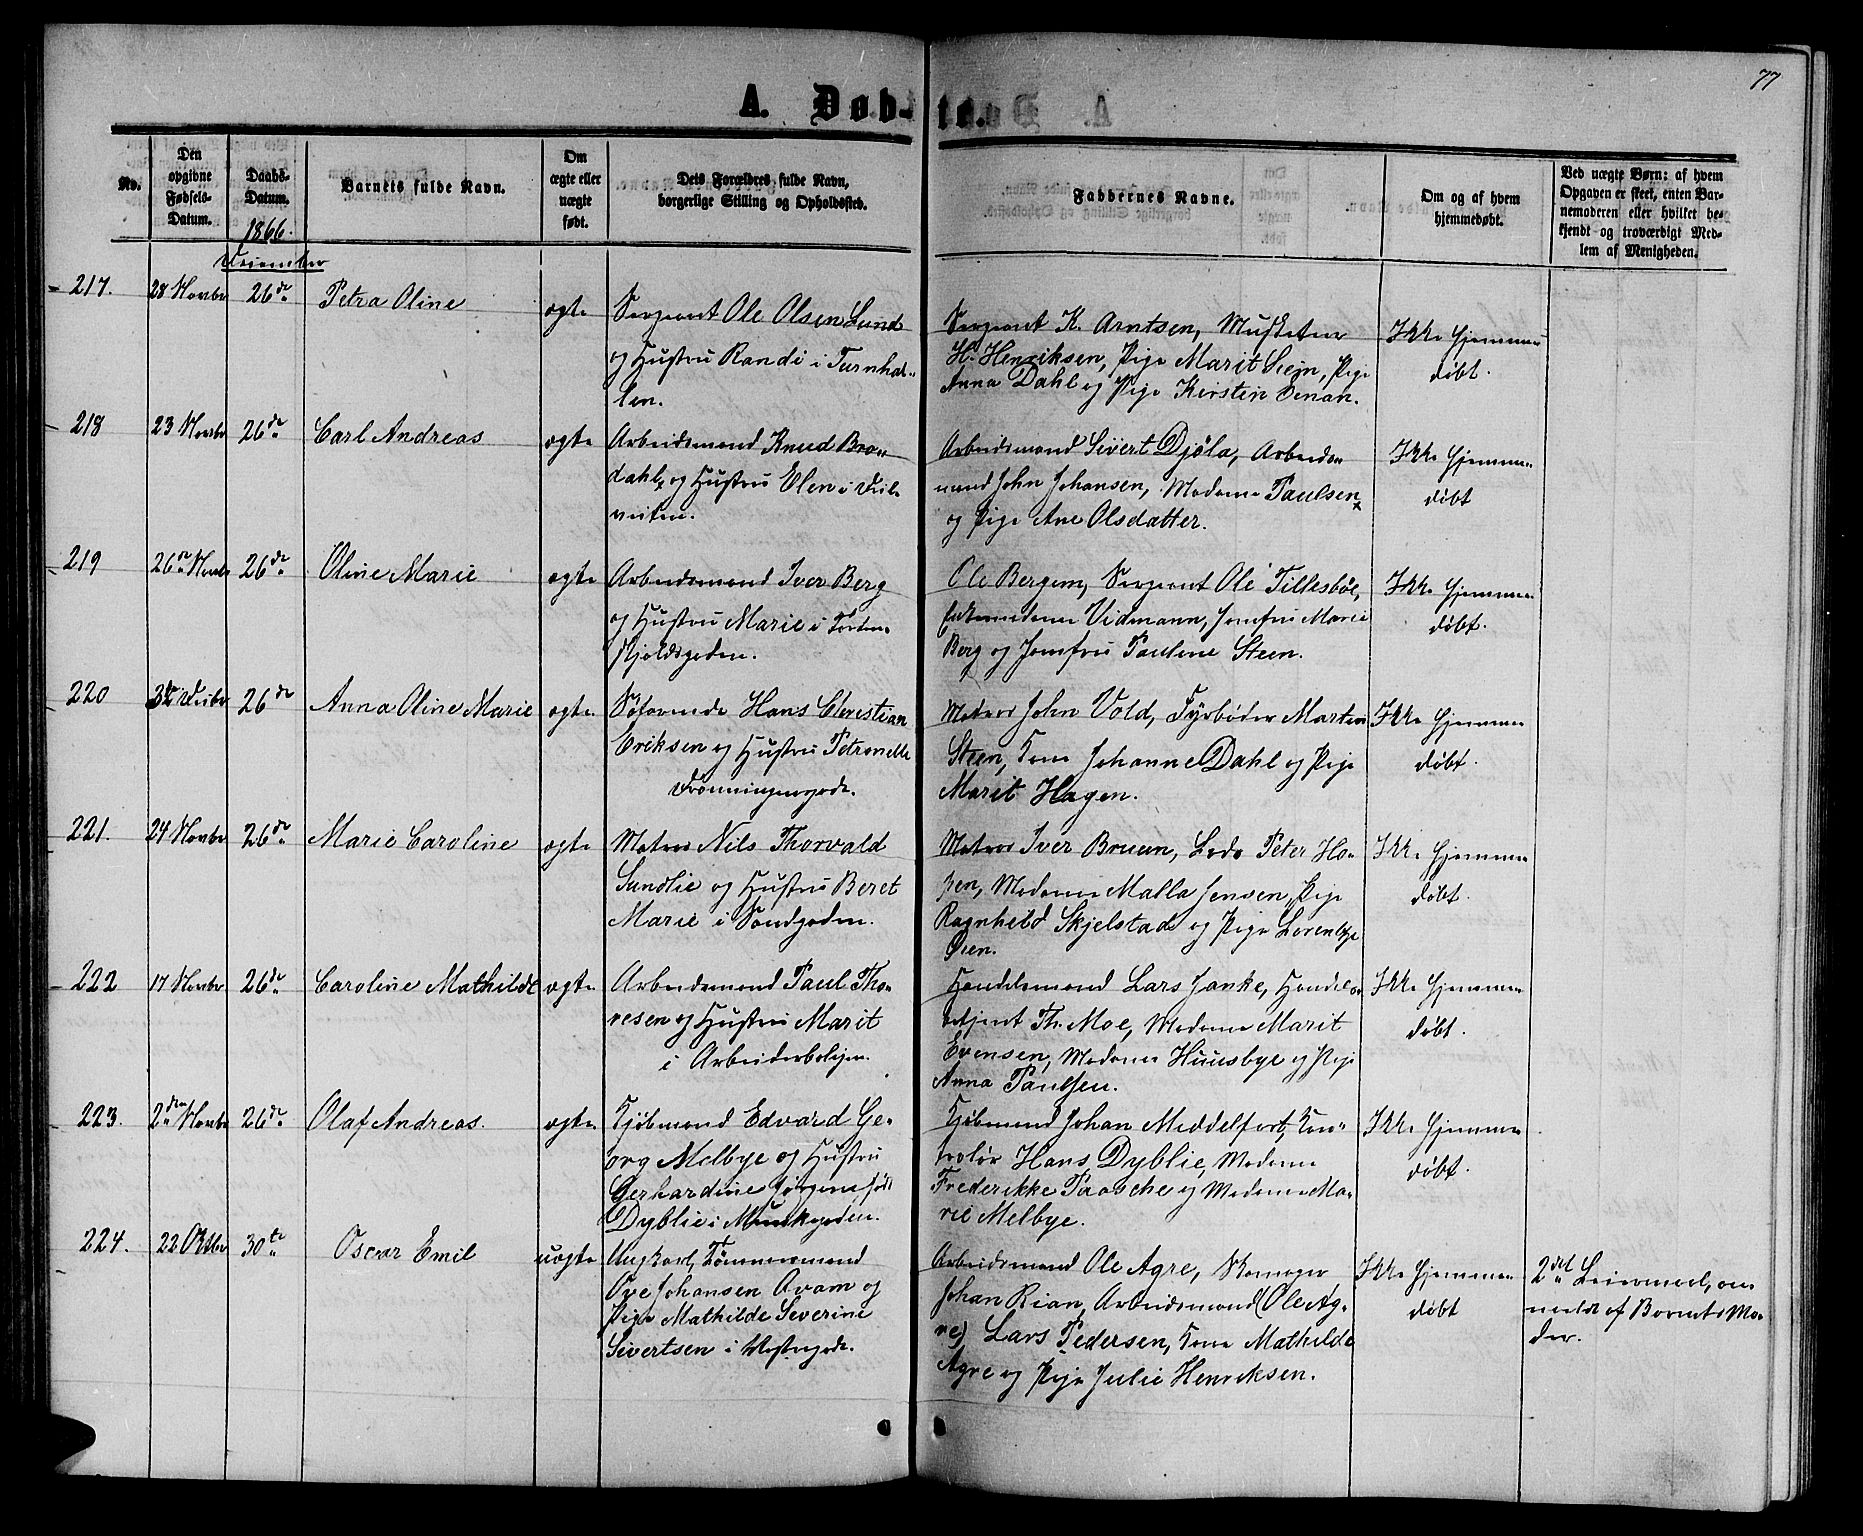 77
A. Døbte.
No.
Den opgivne Fødsels-Datum.
Daabs-Datum.
1866.
December
Barnets fulde Navn.
Om ægte eller uægte født.
Dets Forældres fulde Navn, borgerlige Stilling og Opholdssted.
Faddernes Navne.
Om og af hvem hjemmedøbt.
Ved uægte Børn: af hvem Opgaven er skeet, enten Barnemoderen eller hvilket bekjendt og troværdigt Medlem af Menigheden.
217. 28 Novbr 26de Petra Oline ægte
Sergeant Ole Olsen Lund
og Hustru Randi i Turnhal-
len.
Sergeant K. Arntsen, Musketeer
H. Henriksen, Pige Marit Stejn, Pige
Anna Dahl og Pige Kirstin Einan.
Ikke hjemme
døbt.
218 23 Novbr 26de Carl Andreas ægte
Arbeidsmand Knud Bro-
dahl, og Hustru Elen i Veil-
veiten.
Arbeidsmand Sivert Djöla, Arbeids-
mand John Johansen, Madame Paulsen
og Pige Ane Olsdatter.
Ikke hjemme
døbt
219 26de Novbr 26de Oline Marie ægte
Arbeidsmand Iver Berg
og Hustru Marie i Torden-
skjoldsgaden.
Ole Bergem, Sergeant Ole Tillesböe,
Vidmann, Jomfru Marie
Berg og Jomfru Pauline Steen.
Ikke hjemme
døbt.
220 3die Decbr 26de Anna Oline Marie ægte
Søfarende Hans Christian
Eriksen og Hustru Petronelle
Dronningensgade.
Matros John Vold, Fyrbøder Marten
Steen, Kone Johanne Dahl og Pige
Marit Hagen.
Ikke hjemme
døbt.
221. 24 Novbr 26de Marie Caroline ægte
Matros Nils Thorvald
Sundlie og Hustru Beret
Marie i Sandgaden.
Matros Iver Bruun, Lods Peter Ho-
pen, Madame Malla Jensen, Pige
Ragnhild Skjelstad og Pige Lorentze
Øien.
Ikke hjemme
døbt.
222 17 Novbr 26de Caroline Mathilde ægte
Arbeidsmand Paul Tho-
resen og Hustru Marit
i Arbeiderboligen.
Handelsmand Lars Janke, Handels-
betjent Th. Moe, Madame Marit
Evensen, Madame Huusbye og Pige
Anna Paulsen.
Ikke hjemme
døbt.
223. 2den Novbr 26de Olaf Andreas. ægte
Kjøbmand Edvard Ge-
org Melbye og Hustru
Gerhardine Jørgine født
Dyblie i Munkegaden.
Kjøbmand Johan Middelfart, Kon-
trolør Hans Dyblie, Madame
Frederikke Paasche og Madame Ma-
rie Melbye.
Ikke hjemme
døbt.
224. 22 Octbr 30te Oscar Emil uægte
Ungkarl, Tømmermand
Ove Johansen Avam og
Pige Mathilde Severine
Sivertsen i Vestregade.
Arbeidsmand Ole Agre, Skomager
Johan Rian, Arbeidsmand (Ole Ag-
re) Lars Pedersen, Kone Mathilde
Agre og Pige Julie Henriksen.
Ikke hjemme
døbt
2det Leiermaal, an-
meldt af Barnets Mo-
der.